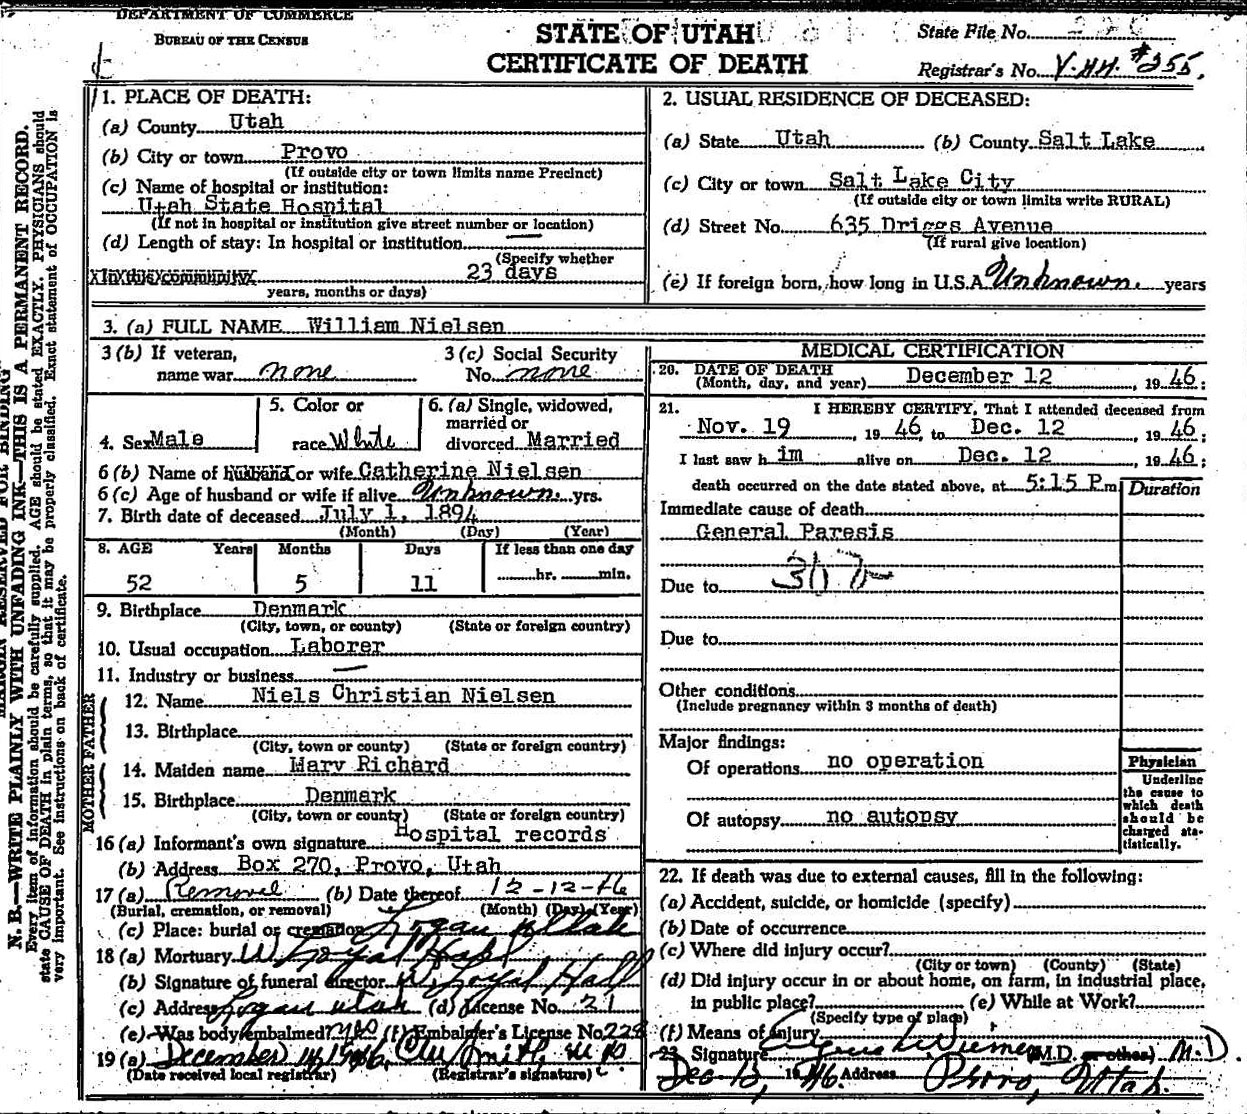 DEPARTMENT OF COMMERCE
BUREAU OF THE CENSUS
STATE OF UTAH
CERTIFICATE OF DEATH
State File No.
Registrar's No. #255.
MARGIN RESERVED FOR BINDING
N. B.—WRITE PLAINLY WITH UNFADING INK—THIS IS A PERMANENT RECORD.
Every item of information should be carefully supplied. AGE should be stated EXACTLY. PHYSICIANS should
state CAUSE OF DEATH in plain terms, so that it may be properly classified. Exact statement of OCCUPATION is
very important. See instructions on back of certificate.
1. PLACE OF DEATH:
(a) County Utah
(b) City or town Provo
(If outside city or town limits name Precinct)
(c) Name of hospital or institution:
Utah State Hospital
(If not in hospital or institution give street number or location)
(d) Length of stay: In hospital or institution
(Specify whether
In this community 23 days
years, months or days)
2. USUAL RESIDENCE OF DECEASED:
(a) State Utah (b) County Salt Lake
(c) City or town Salt Lake City
(If outside city or town limits write RURAL)
(d) Street No. 635 Driggs Avenue
(If rural give location)
(e) If foreign born, how long in U.S.A. Unknown. years
3. (a) FULL NAME William Nielsen
3 (b) If veteran, name war none
3 (c) Social Security No. none
4. Sex Male
5. Color or race White
6. (a) Single, widowed, married or divorced Married
6 (b) Name of husband or wife Catherine Nielsen
6 (c) Age of husband or wife if alive Unknown. yrs.
7. Birth date of deceased July 1, 1894
(Month) (Day) (Year)
8. AGE Years Months Days If less than one day
52 5 11 hr. min.
9. Birthplace Denmark
(City, town, or county) (State or foreign country)
10. Usual occupation Laborer
11. Industry or business
FATHER
12. Name Niels Christian Nielsen
13. Birthplace
(City, town or county) (State or foreign country)
MOTHER
14. Maiden name Mary Richard
15. Birthplace Denmark
(City, town or county) (State or foreign country)
16 (a) Informant's own signature Hospital records
(b) Address Box 270, Provo, Utah
17 (a) Removal (b) Date thereof 12-12-46
(Burial, cremation, or removal) (Month) (Day) (Year)
(c) Place: burial or cremation Logan Utah
18 (a) Mortuary W. Loyal Hall
(b) Signature of funeral director W. Loyal Hall
(c) Address Logan Utah (d) License No. 21
(e) Was body embalmed yes (f) Embalmer's License No. 228
19 (a) December 14, 1946.
(Date received local registrar) (Registrar's signature)
MEDICAL CERTIFICATION
20. DATE OF DEATH
(Month, day, and year) December 12, 1946:
21. I HEREBY CERTIFY, That I attended deceased from
Nov. 19, 1946, to Dec. 12, 1946:
I last saw him alive on Dec. 12, 1946:
death occurred on the date stated above, at 5:15 P.m.
Duration
Immediate cause of death
General Paresis
Due to
Due to
Other conditions
(Include pregnancy within 3 months of death)
Major findings:
Of operations no operation
Of autopsy no autopsy
Physician
Underline
the cause to
which death
should be
charged sta-
tistically.
22. If death was due to external causes, fill in the following:
(a) Accident, suicide, or homicide (specify)
(b) Date of occurrence
(c) Where did injury occur?
(City or town) (County) (State)
(d) Did injury occur in or about home, on farm, in industrial place,
in public place? (e) While at Work?
(Specify type of place)
(f) Means of injury
23 Signature (M.D. or other) M.D.
1946. Address Provo, Utah.